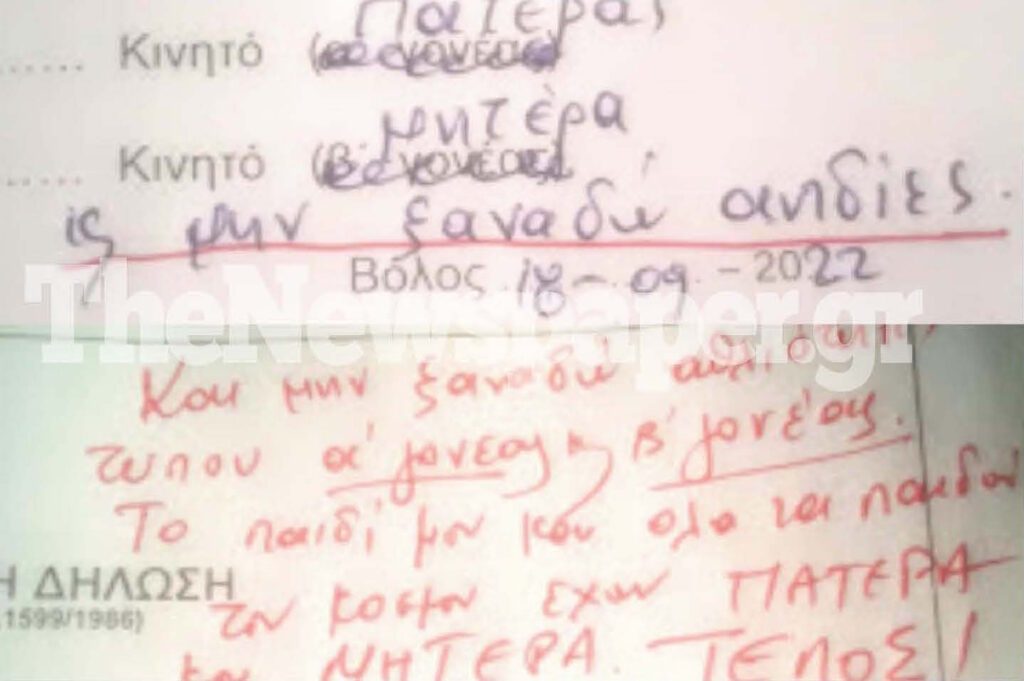 Πατέρας
...... Κινητό
μητέρα
..... Κινητό (β' γονέας)
ις μην ξαναδώ αηδίες.
Βόλος 18-09-2022
TheNewspaper.gr
Και μην ξαναδώ
τυπου α' γονεας κ β' γονέας.
Το παιδί μου και ολα τα παιδια
Η ΔΗΛΩΣΗ
1599/1986)
του κοσμου εχουν ΠΑΤΕΡΑ
και ΜΗΤΕΡΑ. ΤΕΛΟΣ!